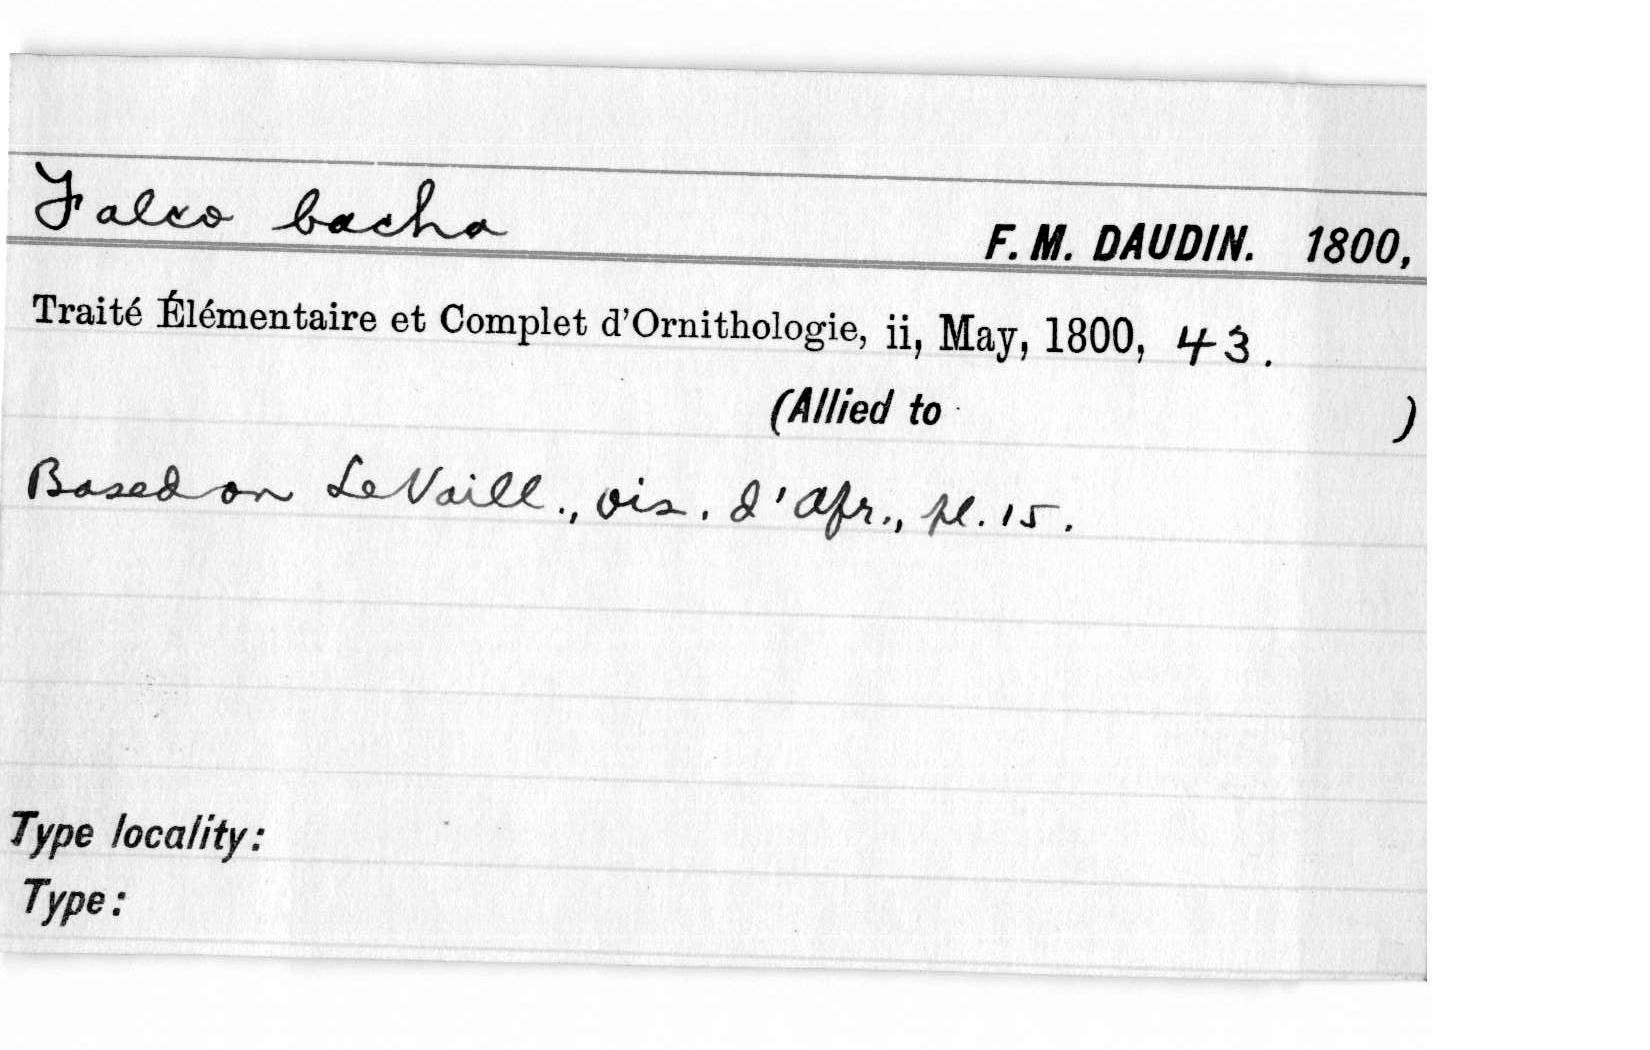 Falco bacha
F. M. DAUDIN. 1800,
Traité Élémentaire et Complet d'Ornithologie, ii, May, 1800, 43.
(Allied to )
Based on Le Vaill., ois. d'Afr., pl. 15.
Type locality:
Type: